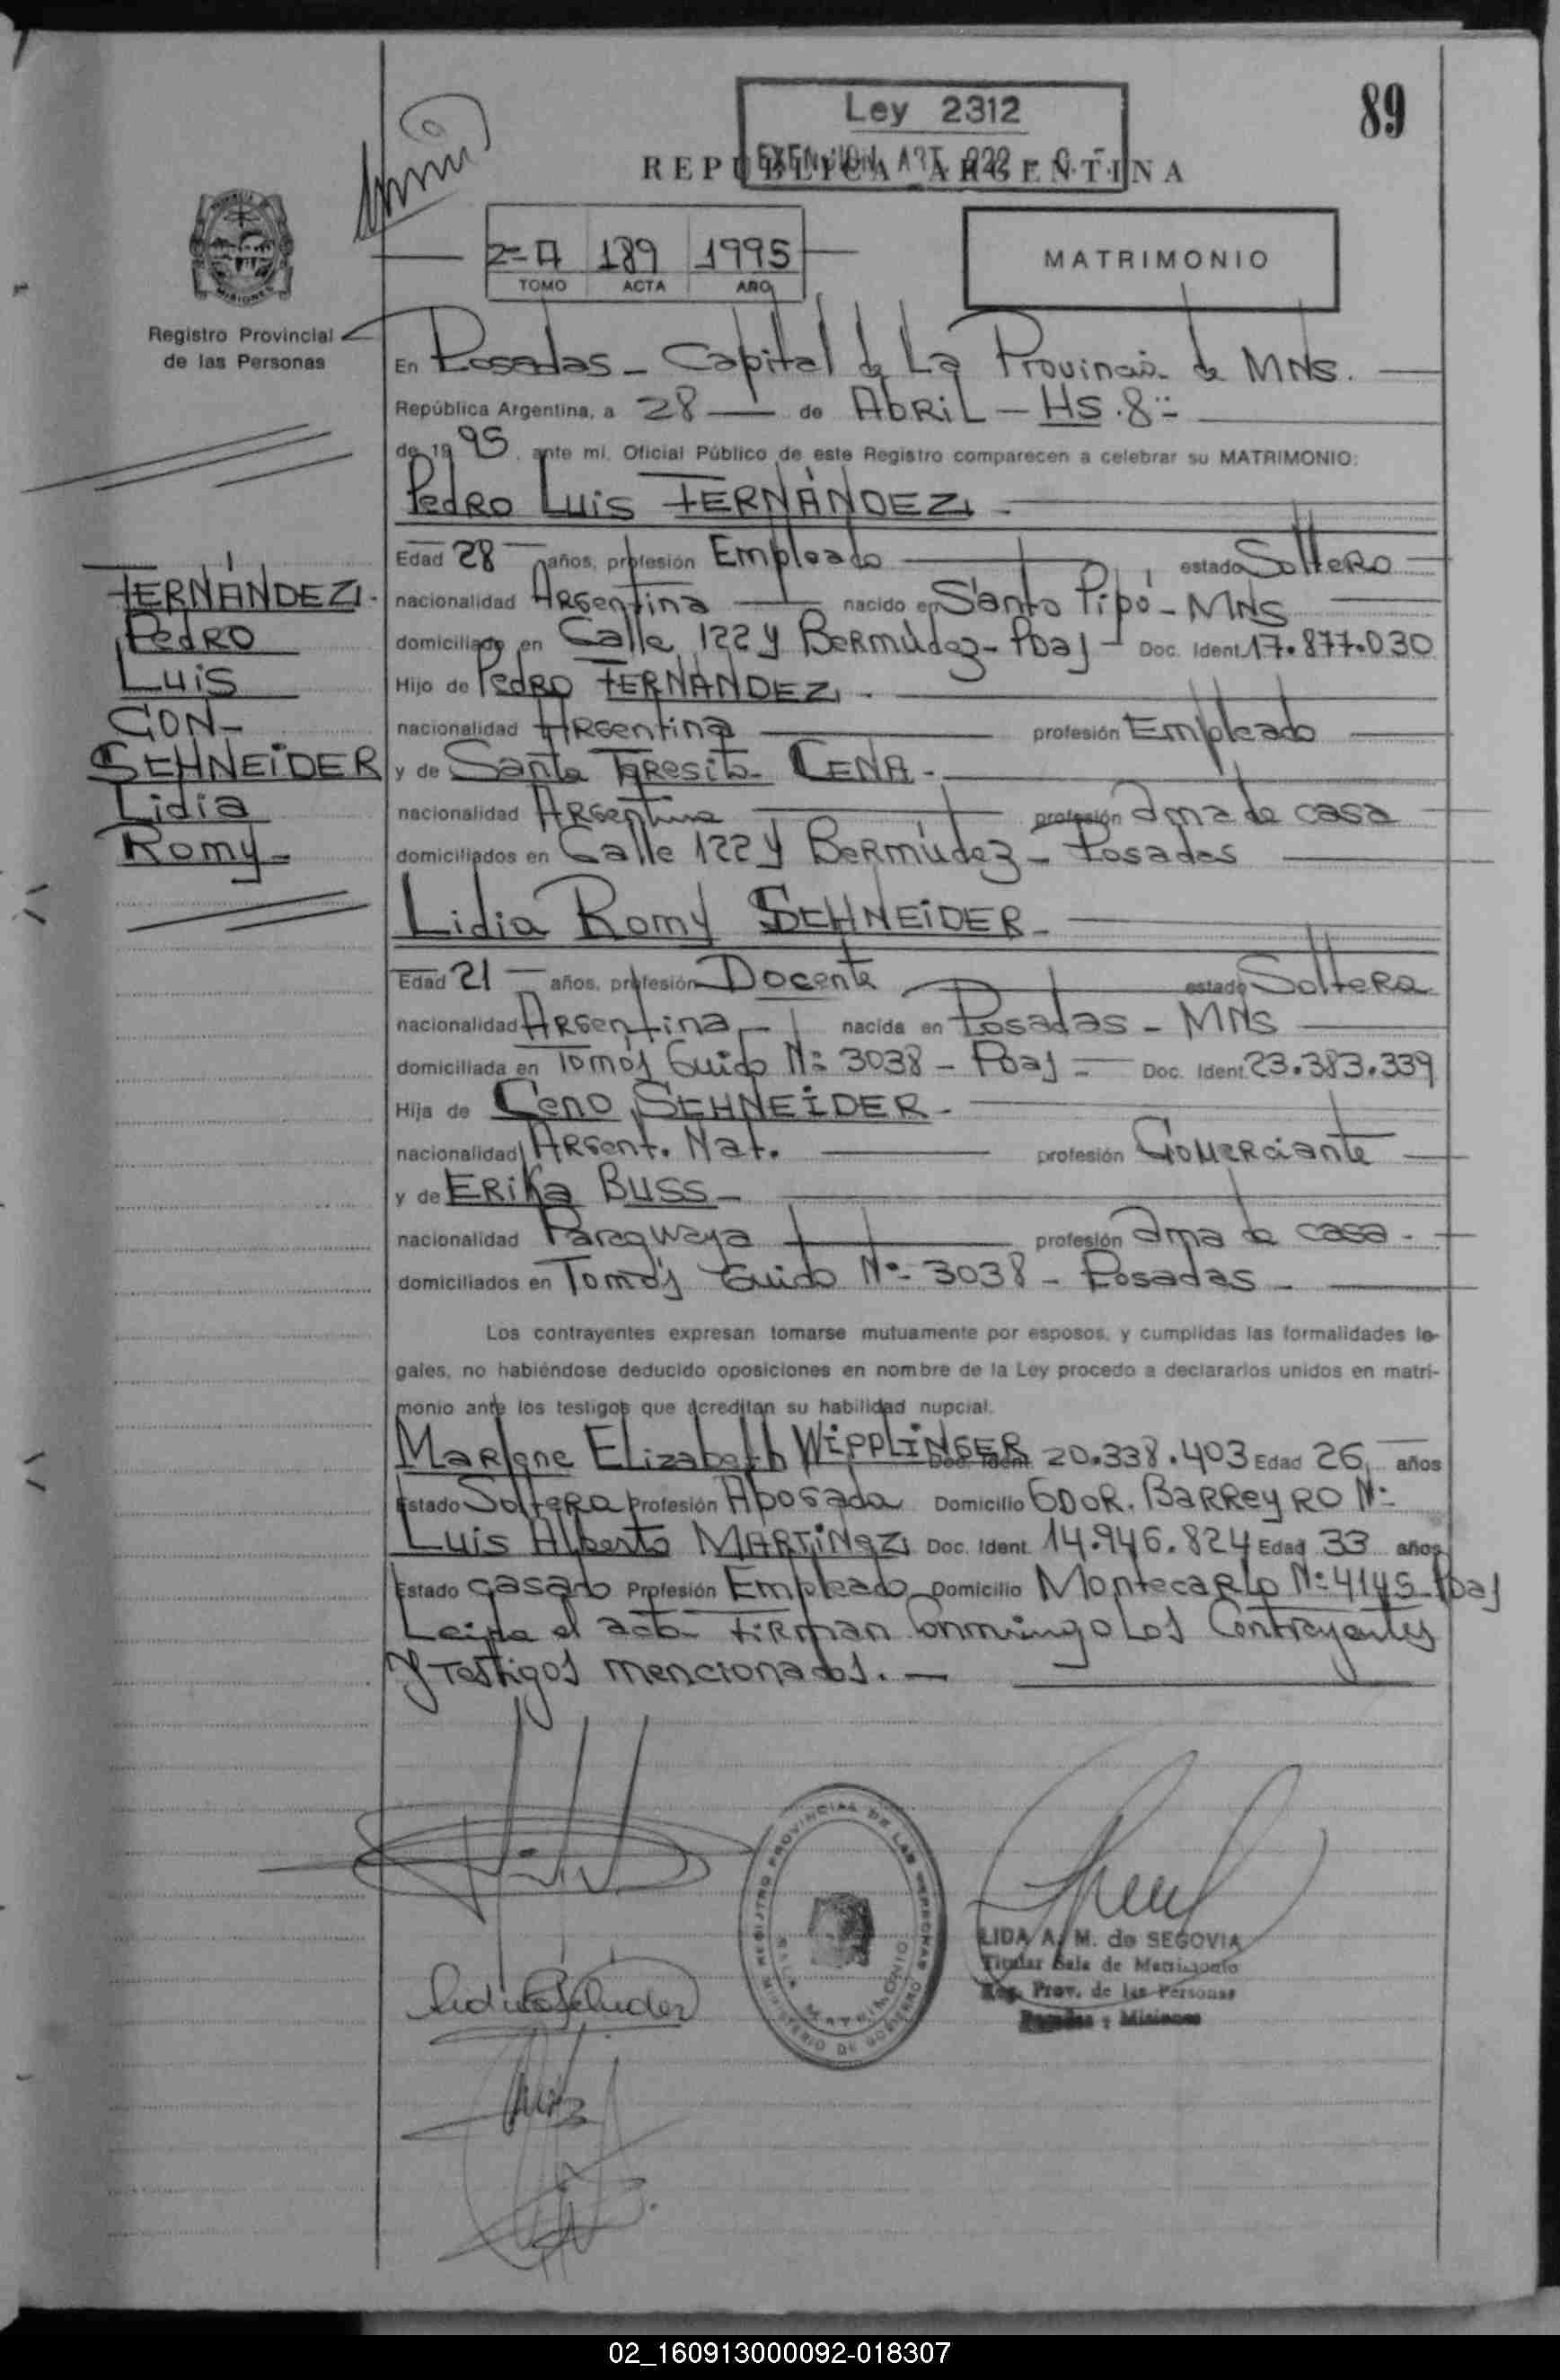 89
Ley 2312
REPUBLICA ARGENTINA
2=A 189 1995
TOMO ACTA AÑO
MATRIMONIO
Registro Provincial
de las Personas
En Posadas - Capital de La Provincia de MNS.
República Argentina, a 28 — de ABRIL - HS. 8 =
de 1995, ante mi, Oficial Público de este Registro comparecen a celebrar su MATRIMONIO:
Pedro Luis FERNÁNDEZ -
Edad 28 - años, profesión Empleado estado Soltero
FERNÁNDEZ -
Pedro
Luis
CON -
SCHNEIDER
Lidia
Romy -
nacionalidad Argentina nacido en Santo Pipó - MNS
domiciliado en Calle 122 y Bermúdez - Pdas - Doc. Ident. 17.877.030
Hijo de Pedro FERNÁNDEZ.
nacionalidad Argentina profesión Empleado
y de Santa Teresita CENA -
nacionalidad Argentina profesión ama de casa
domiciliados en Calle 122 y Bermúdez - Posadas
Lidia Romy SCHNEIDER -
Edad 21 - años, profesión Docente estado Soltera
nacionalidad Argentina - nacida en Posadas - MNS
domiciliada en Tomás Guido Nº 3038 - Pdas - Doc. Ident. 23.383.339
Hija de Ceno SCHNEIDER -
nacionalidad Argent. Nat. profesión Comerciante
y de Erika Buss -
nacionalidad Paraguaya profesión ama de casa -
domiciliados en Tomás Guido Nº 3038 - Posadas -
Los contrayentes expresan tomarse mutuamente por esposos, y cumplidas las formalidades le-
gales, no habiéndose deducido oposiciones en nombre de la Ley procedo a declararlos unidos en matri-
monio ante los testigos que acreditan su habilidad nupcial.
Marlene Elizabeth WIPPLINGER Doc. Ident. 20.338.403 Edad 26 años
Estado Soltera Profesión Abogada Domicilio GDOR. Barreyro Nº
Luis Alberto MARTINEZ Doc. Ident. 14.946.824 Edad 33 años
Estado casado Profesión Empleado Domicilio Montecarlo Nº 4145 - Pdas
Leida el acta firman conmigo Los Contrayentes
y Testigos mencionados. -
REGISTRO PROVINCIAL DE LAS PERSONAS
SALA MATRIMONIO
MINISTERIO DE GOBIERNO
LIDA A. M. de SEGOVIA
Titular Sala de Matrimonio
Reg. Prov. de las Personas
Posadas - Misiones
02_160913000092-018307